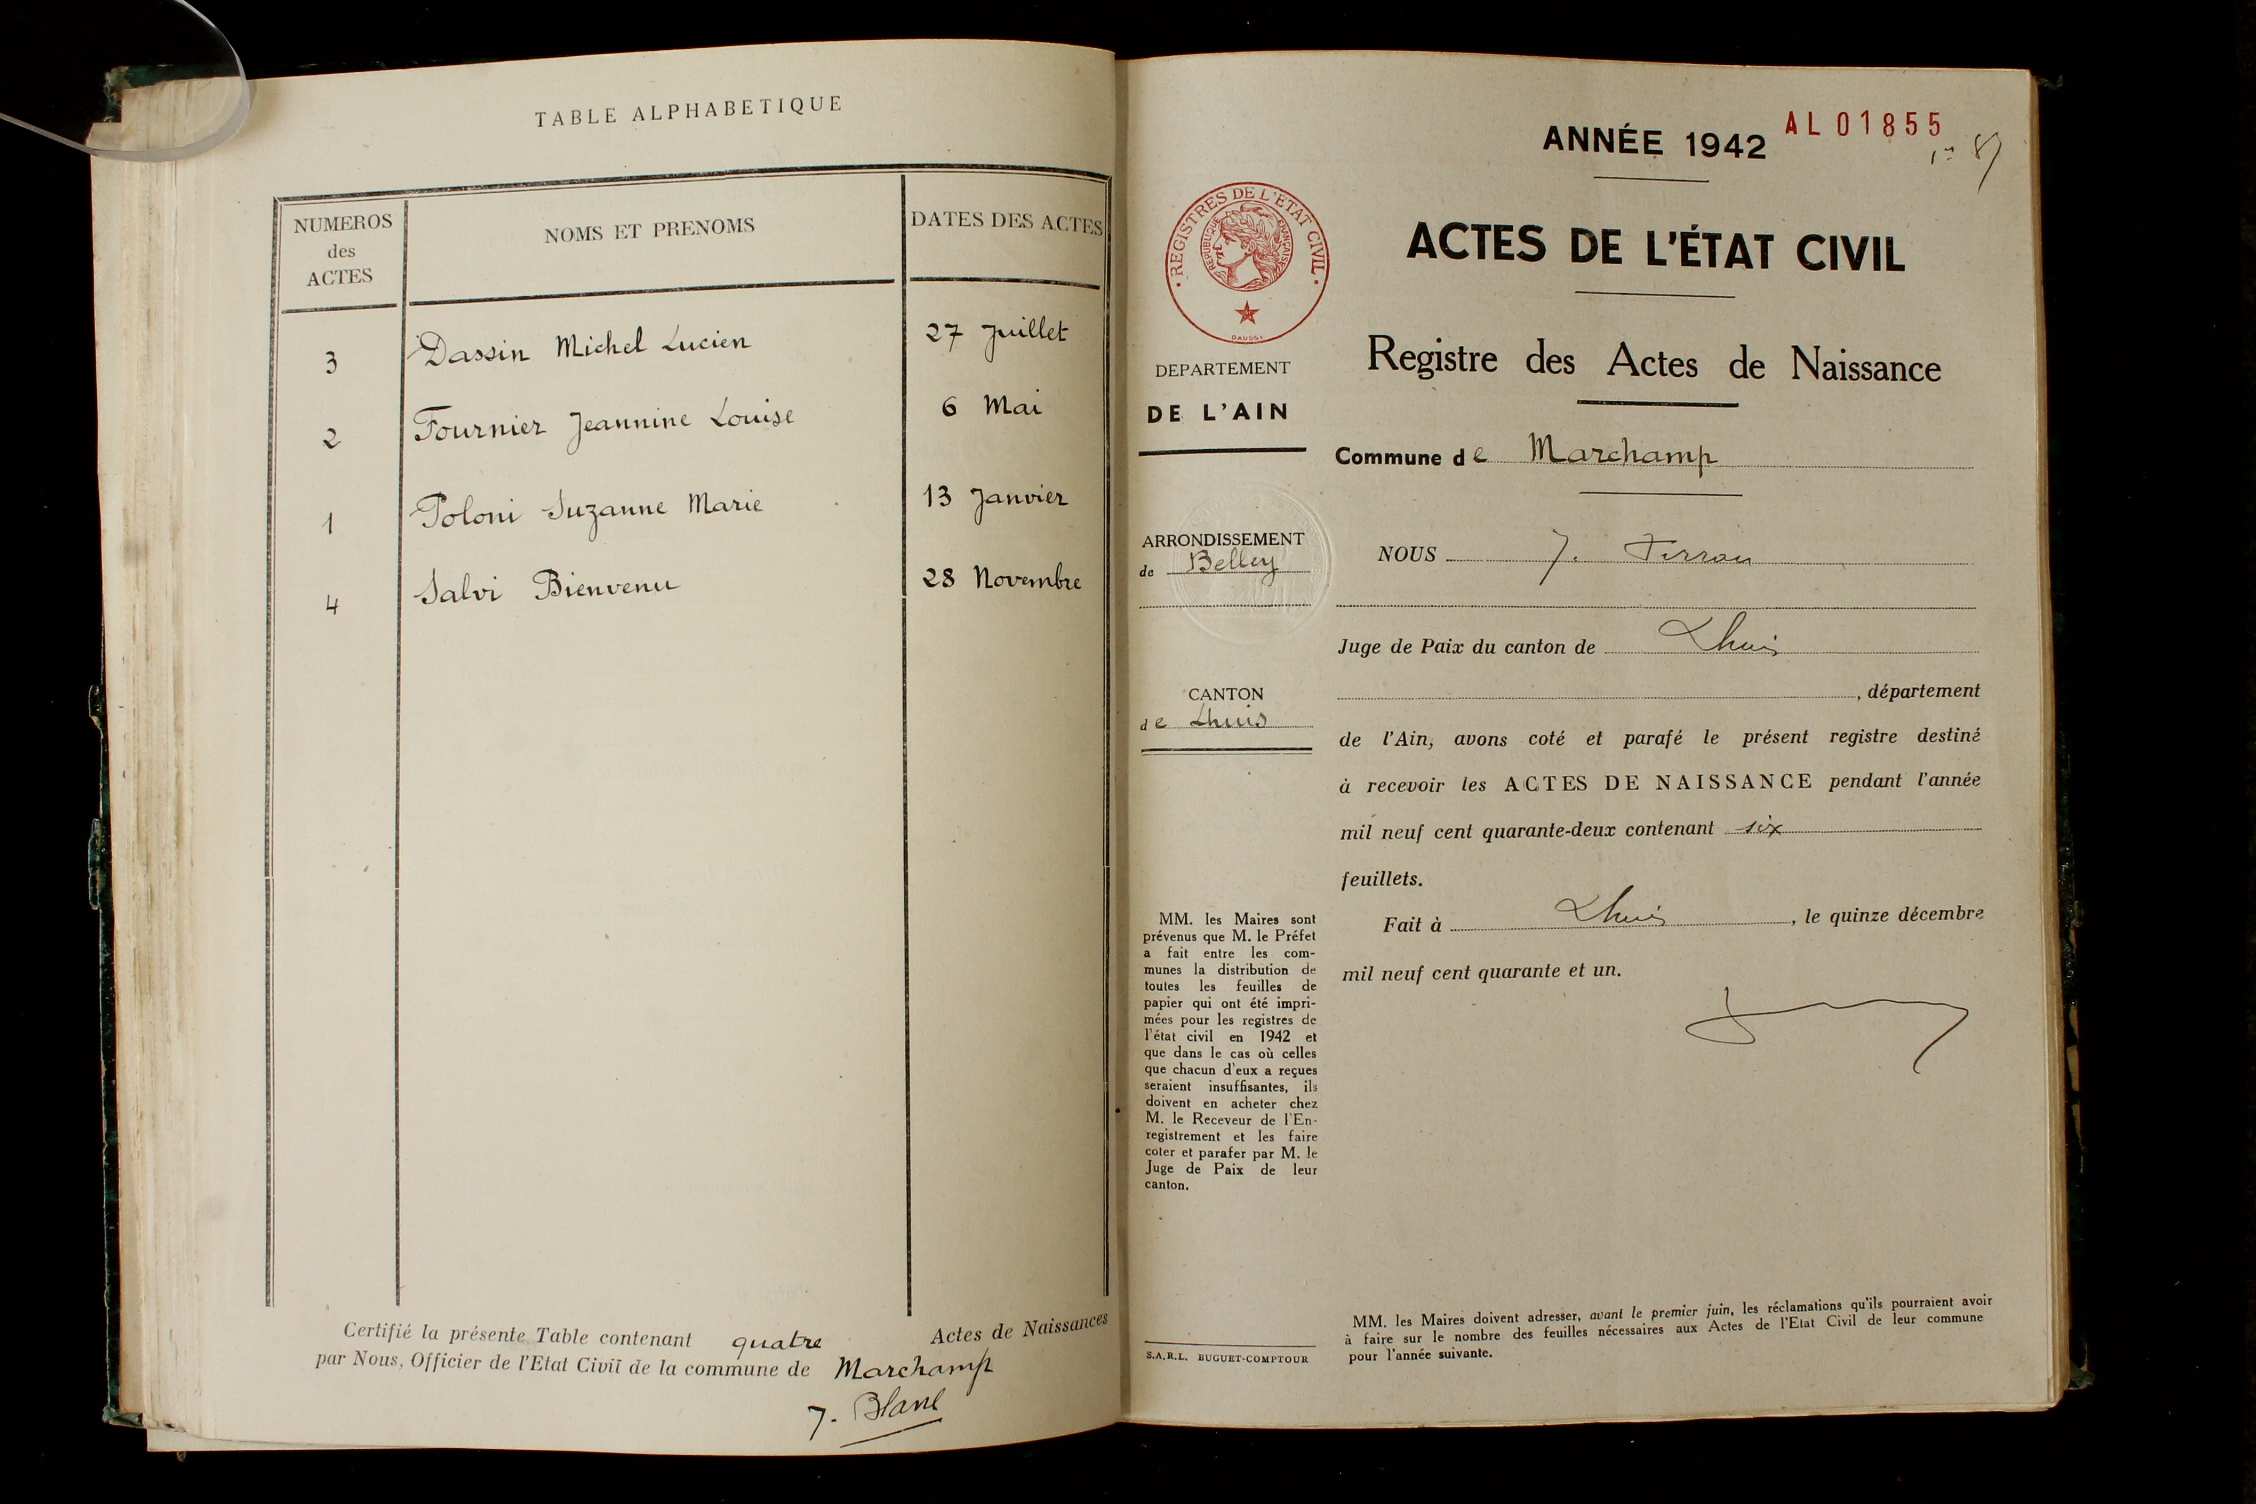 TABLE ALPHABETIQUE
NUMEROS
des
ACTES
NOMS ET PRENOMS
DATES DES ACTES
3 Dassin Michel Lucien 27 Juillet
2 Fournier Jeannine Louise 6 Mai
1 Poloni Suzanne Marie 13 Janvier
4 Salvi Bienvenu 28 Novembre
Certifié la présente Table contenant quatre Actes de Naissances
par Nous, Officier de l'Etat Civil de la commune de Marchamp
J. Blanc
ANNÉE 1942
AL 01855
REGISTRES DE L'ETAT CIVIL
REPUBLIQUE FRANÇAISE
DEPARTEMENT
DE L'AIN
ARRONDISSEMENT
de Belley
CANTON
de Lhuis
MM. les Maires sont
prévenus que M. le Préfet
a fait entre les com-
munes la distribution de
toutes les feuilles de
papier qui ont été impri-
mées pour les registres de
l'état civil en 1942 et
que dans le cas où celles
que chacun d'eux a reçues
seraient insuffisantes, ils
doivent en acheter chez
M. le Receveur de l'En-
registrement et les faire
coter et parafer par M. le
Juge de Paix de leur
canton.
S.A.R.L. BUGUET-COMPTOUR
ACTES DE L'ÉTAT CIVIL
Registre des Actes de Naissance
Commune de Marchamp
NOUS J.
Juge de Paix du canton de Lhuis
, département
de l'Ain, avons coté et parafé le présent registre destiné
à recevoir les ACTES DE NAISSANCE pendant l'année
mil neuf cent quarante-deux contenant six
feuillets.
Fait à Lhuis, le quinze décembre
mil neuf cent quarante et un.
MM. les Maires doivent adresser, avant le premier juin, les réclamations qu'ils pourraient avoir
à faire sur le nombre des feuilles nécessaires aux Actes de l'Etat Civil de leur commune
pour l'année suivante.